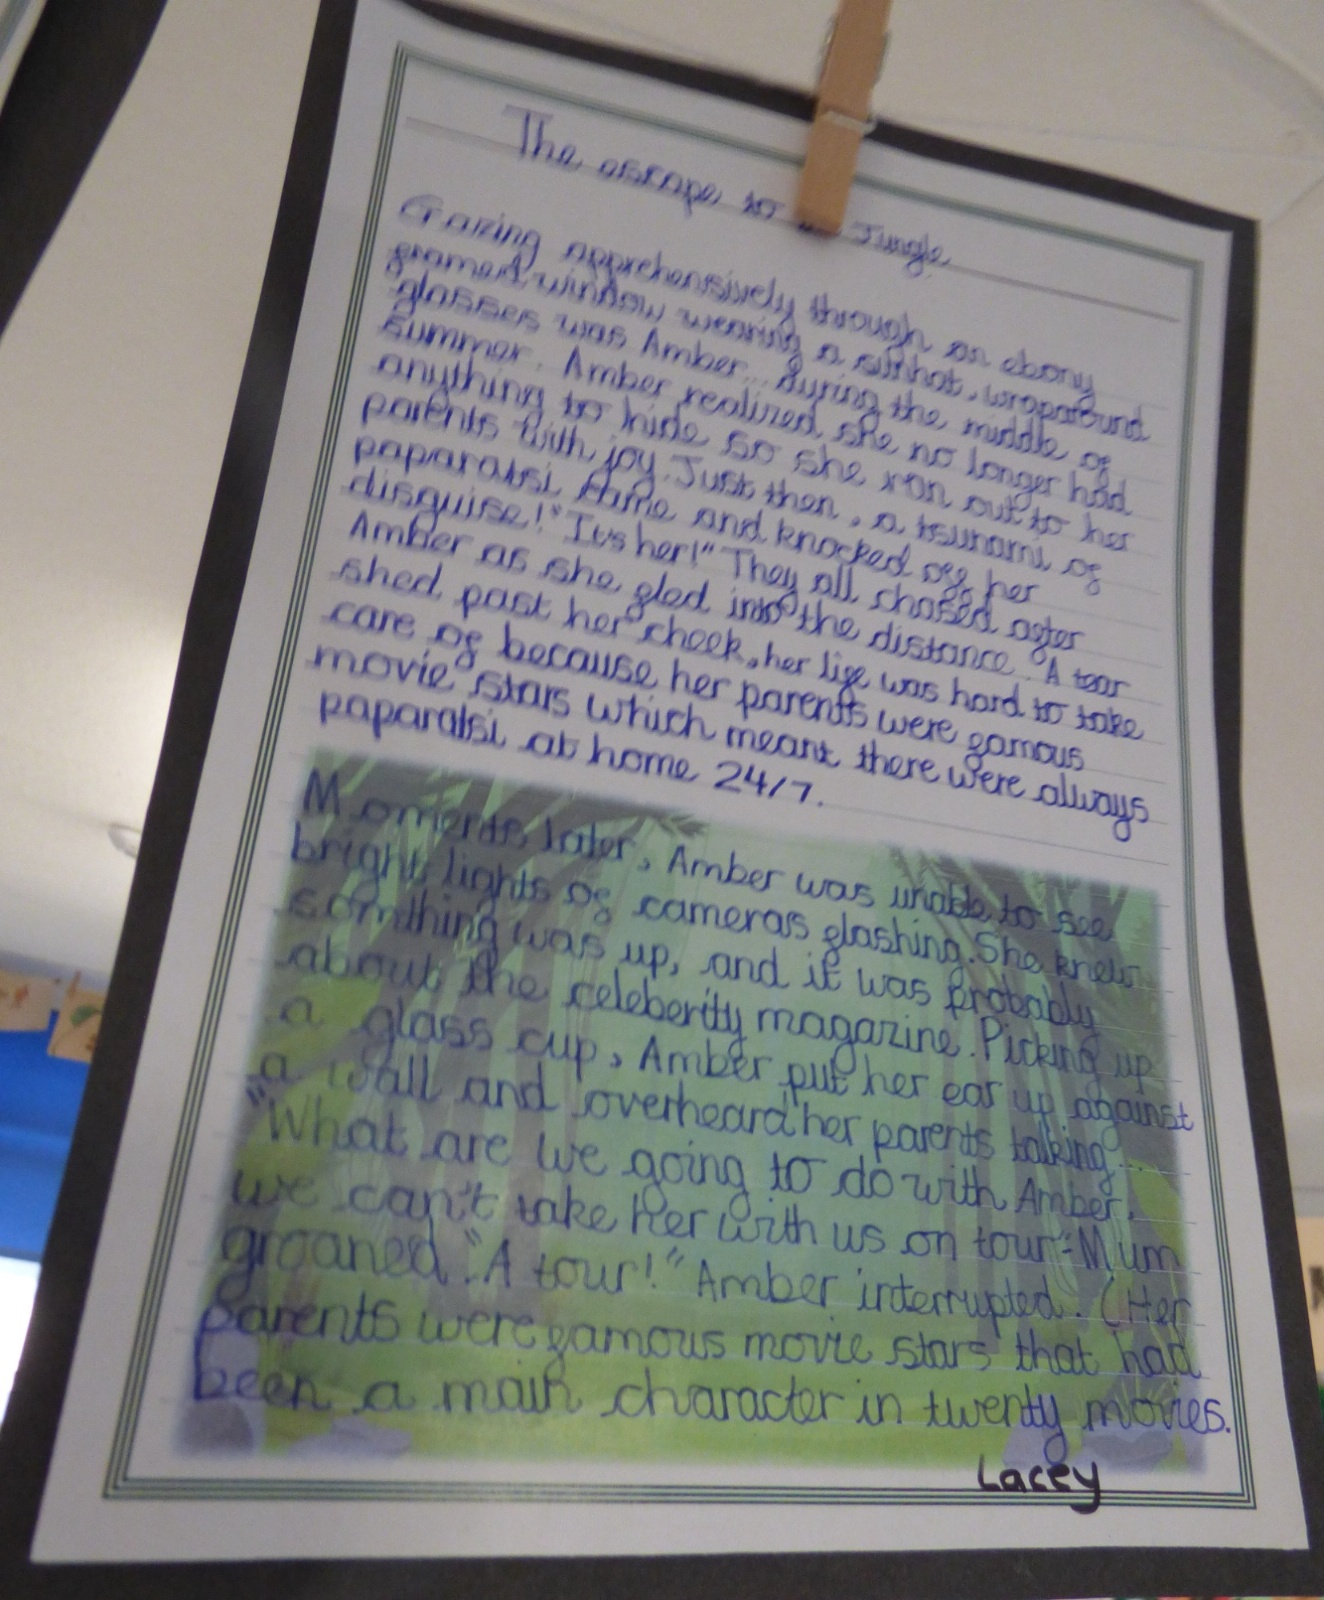 The escape to Jungle
Gazing apprehensively through an ebony
framed window wearing a sunhat, wraparound
glasses was Amber... during the middle of
summer. Amber realized she no longer had
anything to hide so she ran out to her
parents with joy. Just then, a tsunami of
paparatsi came and knocked off her
disguise! "It's her!" They all chased after
Amber as she fled into the distance. A tear
shed past her cheek, her life was hard to take
care of because her parents were famous
movie stars which meant there were always
paparatsi at home 24/7.
Moments later, Amber was unable to see
bright lights of cameras flashing. She knew
somthing was up, and it was probably
about the celeberity magazine. Picking up
a glass cup, Amber put her ear up against
a wall and overheard her parents talking...
"What are we going to do with Amber,
we can't take her with us on tour" Mum
groaned. "A tour!" Amber interrupted. (Her
parents were famous movie stars that had
been a main character in twenty movies.
Lacey